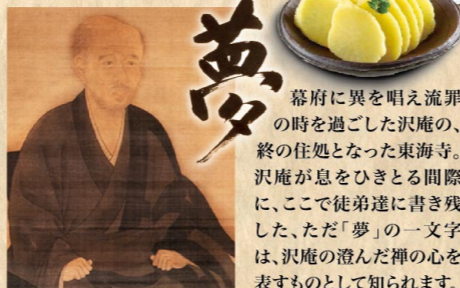 夢
幕府に異を唱え流罪
の時を過ごした沢庵の、
終の住処となった東海寺。
沢庵が息をひきとる間際
に、ここで徒弟達に書き残
した、ただ「夢」の一文字
は、沢庵の澄んだ禅の心を
表すものとして知られます。